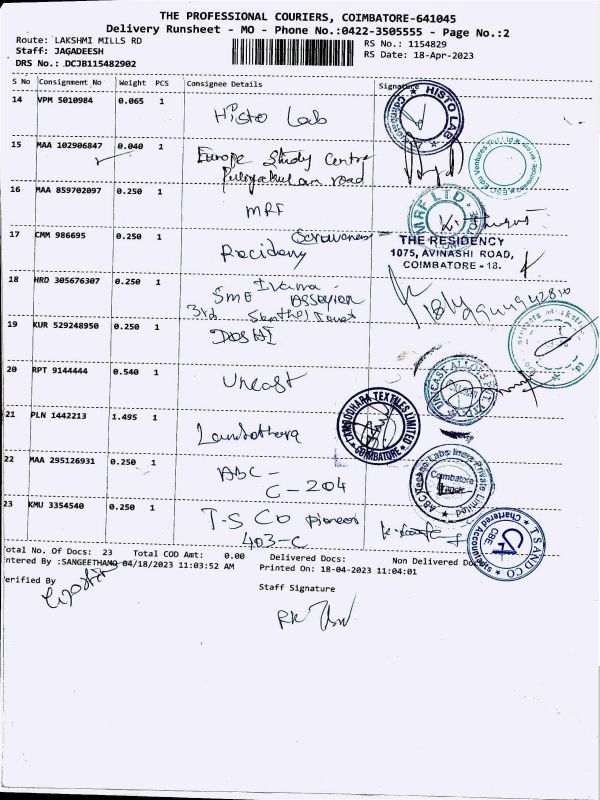 THE PROFESSIONAL COURIERS, COIMBATORE-641045
Delivery Runsheet - MO - Phone No.:0422-3505555 - Page No.:2
Route: LAKSHMI MILLS RD
RS No.: 1154829
Staff: JAGADEESH
RS Date: 18-Apr-2023
DRS No.: .DCJB115482902
S No Consignment No Weight PCS Consignee Details Signature
14 VPM 5010984 0.065 1 Histo Lab
HISTO LAB
15 MAA 102906847 0.040 1 Europe Study Centre
Puliyakulam road
16 MAA 859702097 0.250 1 MRF
MRF LTD.
17 CMM 986695 0.250 1 Recidency
THE RESIDENCY
1075, AVINASHI ROAD,
COIMBATORE - 18.
18 HRD 305676307 0.250 1 SME
3rd
19 KUR 529248950 0.250 1 DOSHI
20 RPT 9144444 0.540 1 Unicast
UNICAST ALLOYS
21 PLN 1442213 1.495 1
LAMBODHARA TEXTILES LIMITED
COIMBATORE
22 MAA 295126931 0.250 1 ABC -
C - 204
ABC Techno Labs India Private Limited
Coimbatore
Branch
23 KMU 3354540 0.250 1 T-S CO pioneer
403-C
T S AND CO
Chartered Accountants
CBE
Total No. Of Docs: 23 Total COD Amt: 0.00 Delivered Docs: Non Delivered Docs
Entered By :SANGEETHAMO 04/18/2023 11:03:52 AM Printed On: 18-04-2023 11:04:01
Verified By
Staff Signature